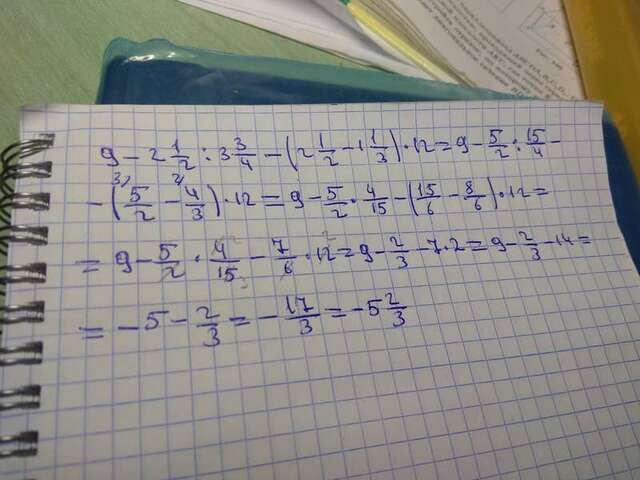 9 - 2 1/2 : 3 3/4 - (2 1/2 - 1 1/3) · 12 = 9 - 5/2 : 15/4 -
3) 2)
- (5/2 - 4/3) · 12 = 9 - 5/2 · 4/15 - (15/6 - 8/6) · 12 =
= 9 - 5/2 · 4/15 - 7/6 · 12 = 9 - 2/3 - 7 · 2 = 9 - 2/3 - 14 =
= - 5 - 2/3 = - 17/3 = - 5 2/3